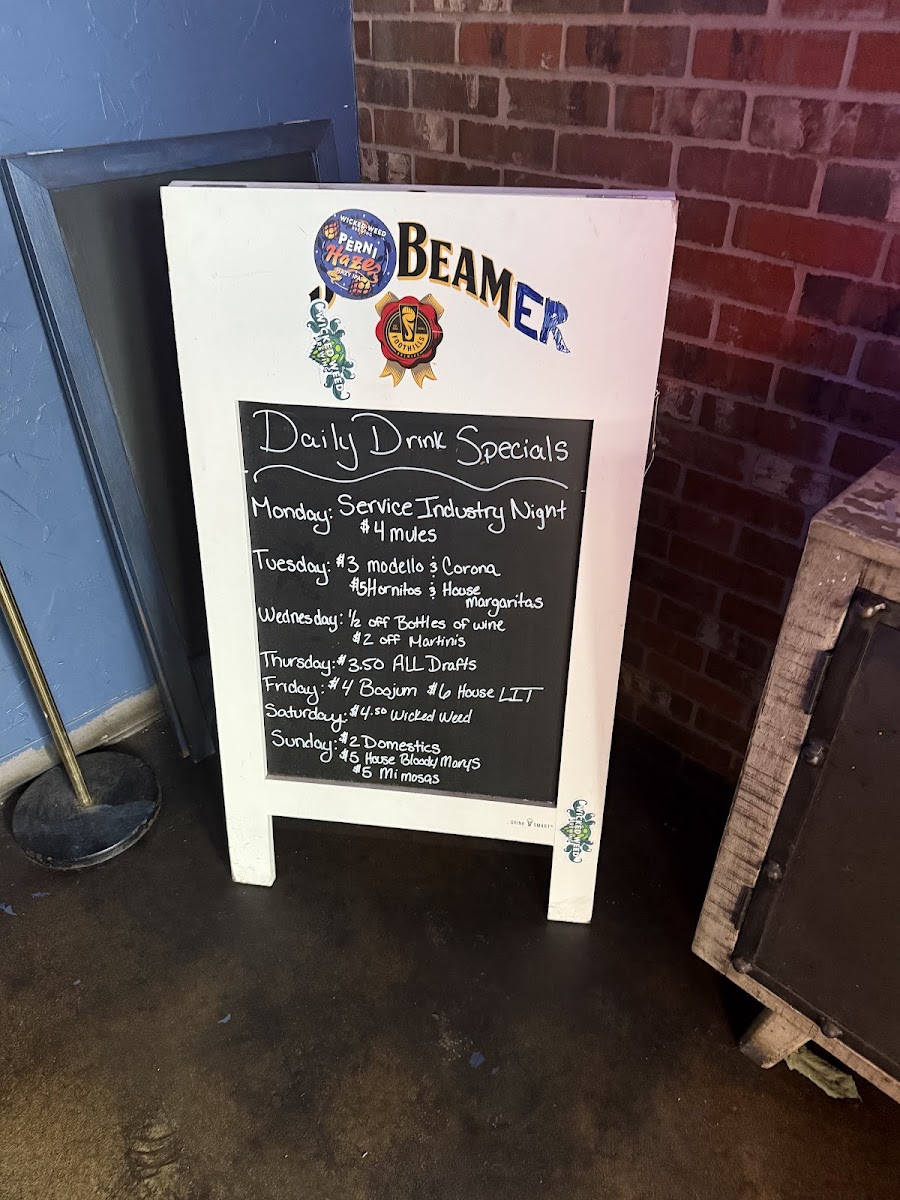 WICKED WEED
BREWING
PERNI
Haze
HAZY IPA
BEAMER
FOOTHILLS
BREWING
WICKED WEED
Daily Drink Specials
Monday: Service Industry Night
$4 mules
Tuesday: $3 modello & Corona
$5 Hornitos & House
margaritas
Wednesday: 1/2 off Bottles of wine
$2 off Martinis
Thursday: $3.50 ALL Drafts
Friday: $4 Boojum $6 House LIT
Saturday: $4.50 Wicked Weed
Sunday: $2 Domestics
$5 House Bloody Marys
$5 Mimosas
DRINK SMART
WICKED WEED